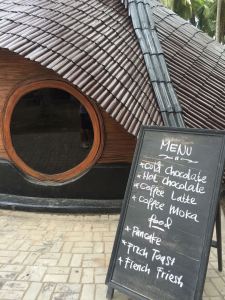 MENU
* Cold Chocolate
* Hot Chocolate
* Coffee Latte
* Coffee Moka
food
* Pancake
* Frech Toast
* French Friesh